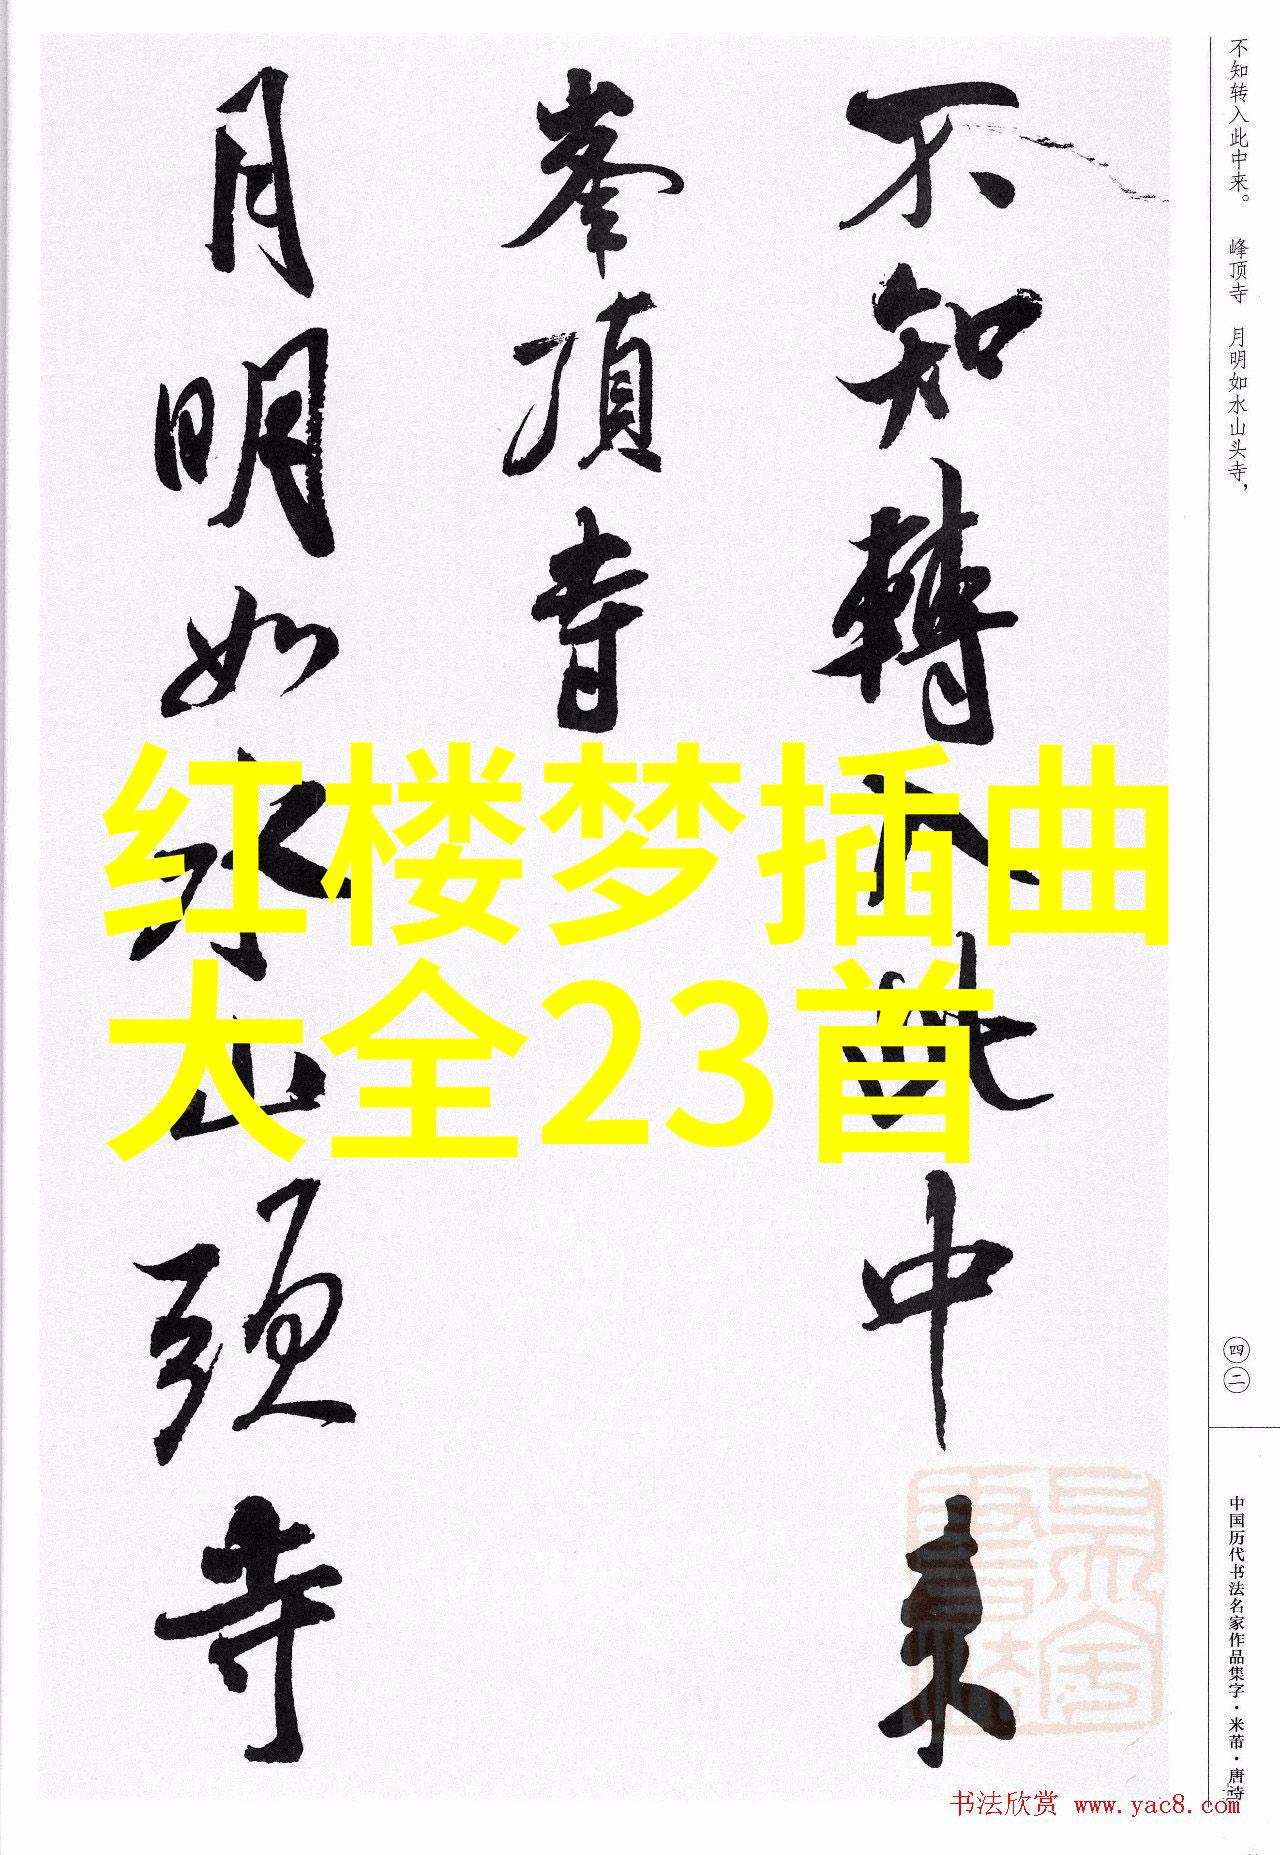 不知转入此中来。 峰顶寺 月明如水山头寺，
不知轉入此中来
峯頂寺
月明如水山頭寺
红楼梦插曲
大全23首
四二
中国历代书法名家作品集字·米芾·唐诗
书法欣赏 www.yac8.com